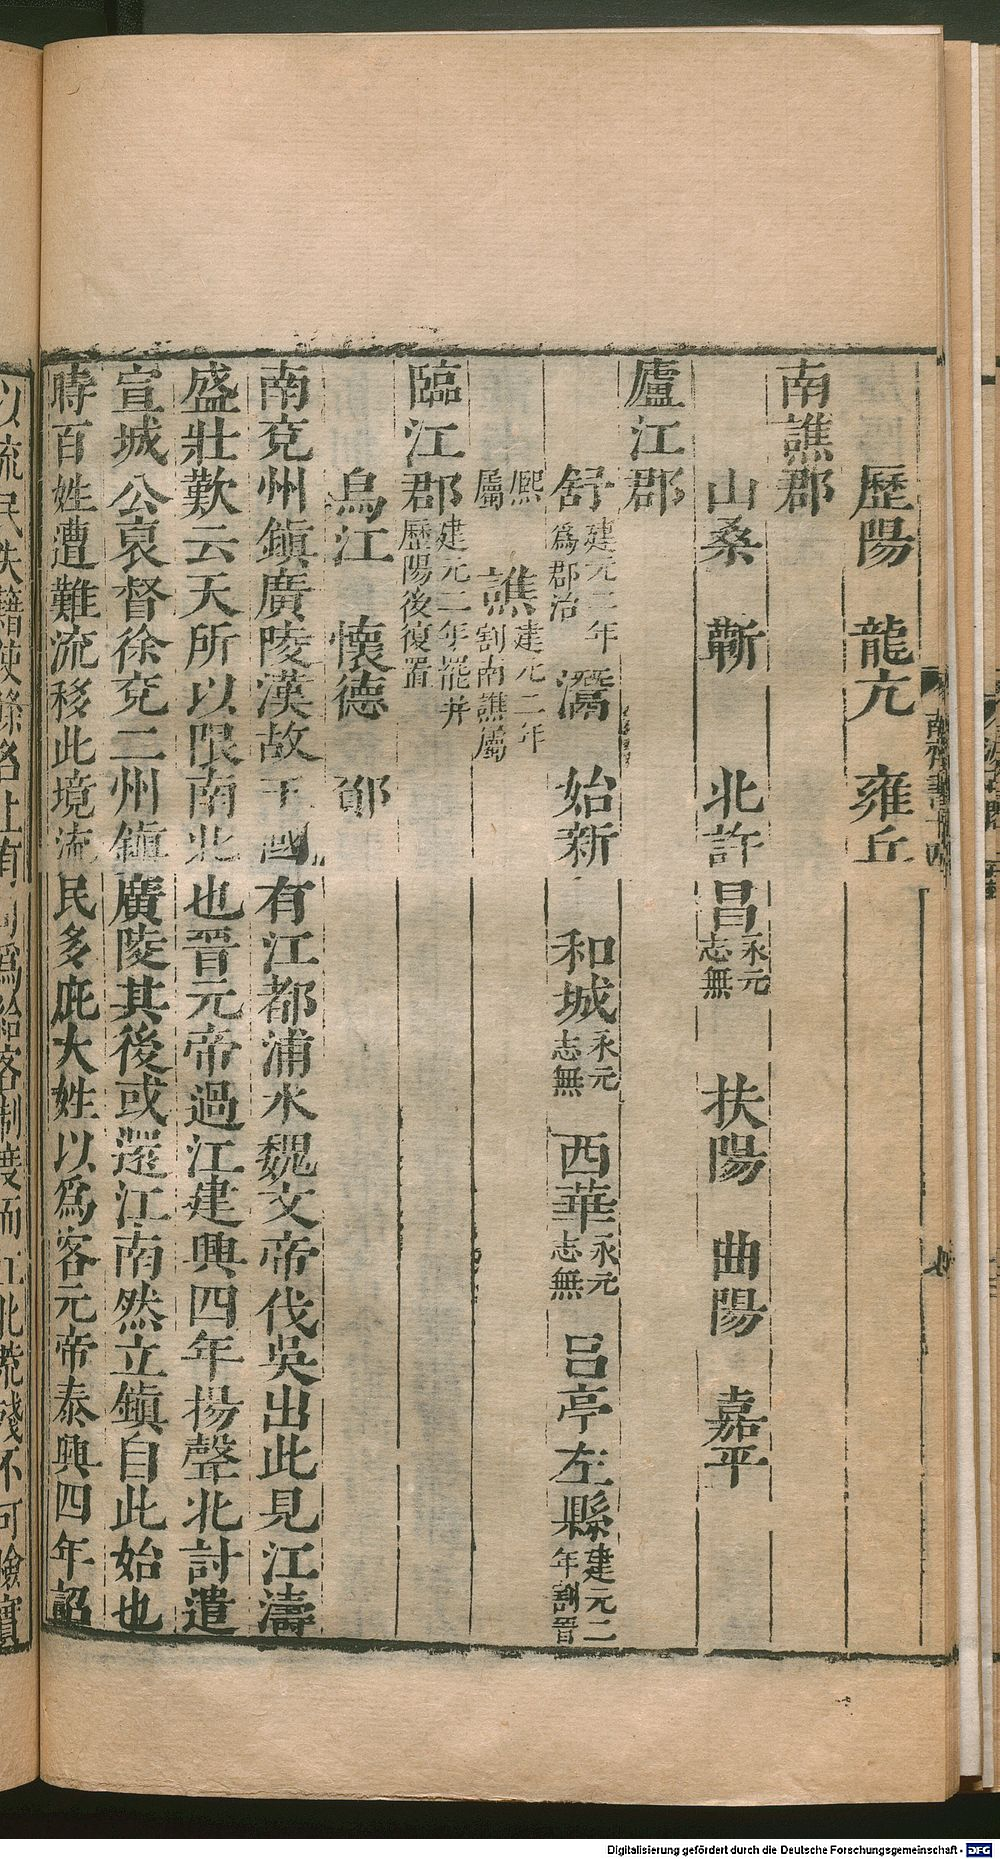 歷陽　龍亢　雍丘
南譙郡
山桑　蘄　北許昌永元志無　扶陽　曲陽　嘉平
廬江郡
舒建元二年爲郡治　灊　始新　和城永元志無　西華永元志無　呂亭左縣建元二年割晉
熙屬　譙建元二年割南譙屬
臨江郡建元二年罷并歷陽後復置
烏江　懷德　酇
南兗州鎭廣陵漢故王國有江都浦水魏文帝伐吳出此見江濤
盛壯歎云天所以限南北也晉元帝過江建興四年揚聲北討遣
宣城公裒督徐兗二州鎮廣陵其後或還江南然立鎮自此始也
時百姓遭難流移此境流民多庇大姓以爲客元帝泰興四年詔
以流民失籍使條名上有司爲給客制度而江北荒殘不可檢實
Digitalisierung gefördert durch die Deutsche Forschungsgemeinschaft - DFG